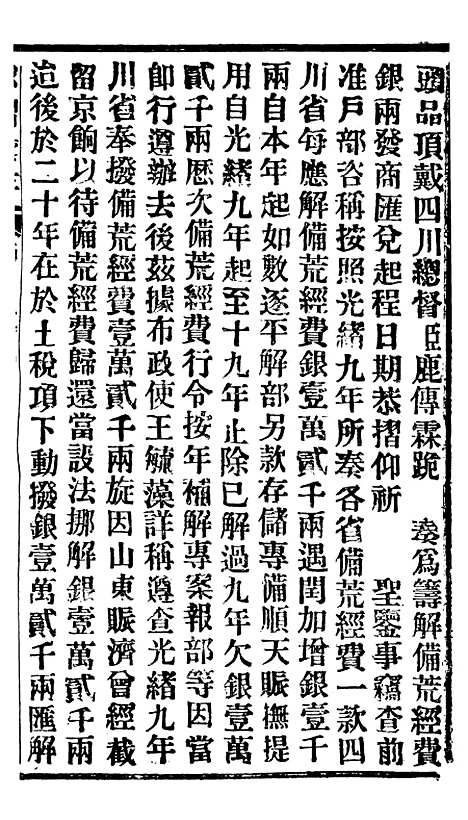 頭品頂戴四川總督臣鹿傳霖跪　奏爲籌解備荒經費
銀兩發商匯兌起程日期恭摺仰祈　聖鑒事竊查前
准戶部咨稱按照光緒九年所奏各省備荒經費一款四
川省每應解備荒經費銀壹萬貳千兩遇閏加增銀壹千
兩自本年起如數逐平解部另款存儲專備順天賑撫提
用自光緒九年起至十九年止除已解過九年欠銀壹萬
貳千兩歷次備荒經費行令按年補解專案報部等因當
卽行遵辦去後茲據布政使王毓藻詳稱遵查光緒九年
川省奉撥備荒經費壹萬貳千兩旋因山東賑濟曾經截
留京餉以待備荒經費歸還當設法挪解銀壹萬貳千兩
迨後於二十年在於土稅項下動撥銀壹萬貳千兩匯解